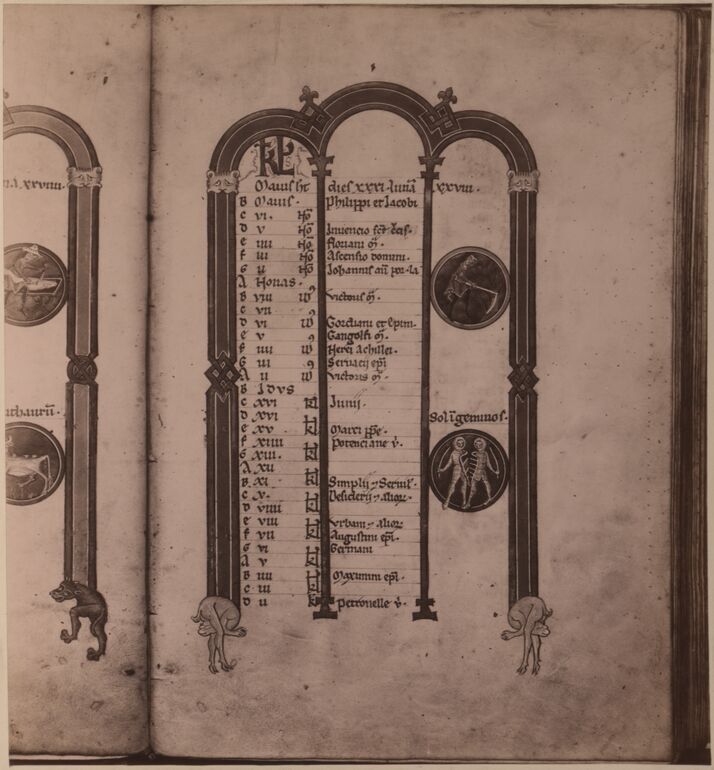 a xxviiii.
KL
Maius ht dies xxxi. luna xxviii.
B Maius. Philippi et Jacobi
C vi. No
D v No Invencio sct crcis.
E iiii No floriani m.
F iii No Ascensio domini.
G ii No Johannis an por. la
A Nonas.
B viii Victoris m.
C vii
D vi Gordiani et Epim.
E v Gangolfi m.
F iiii Nerei Achillei.
G iii Servacii epi
A ii Victoris m.
B Idus
C xvi kl Junii.
D xvi
E xv kl Marci ppe.
F xiiii Potenciane v.
G xiii. kl
A xii
B xi kl Simplii
C x. kl Desiderii alior
D viiii kl
E viii Urbani alior
F vii kl Augustini epi.
G vi kl Germani
A v
B iiii kl Maximini epi.
C iii
D ii kl Petronelle v.
Sol i geminos.
thauru.